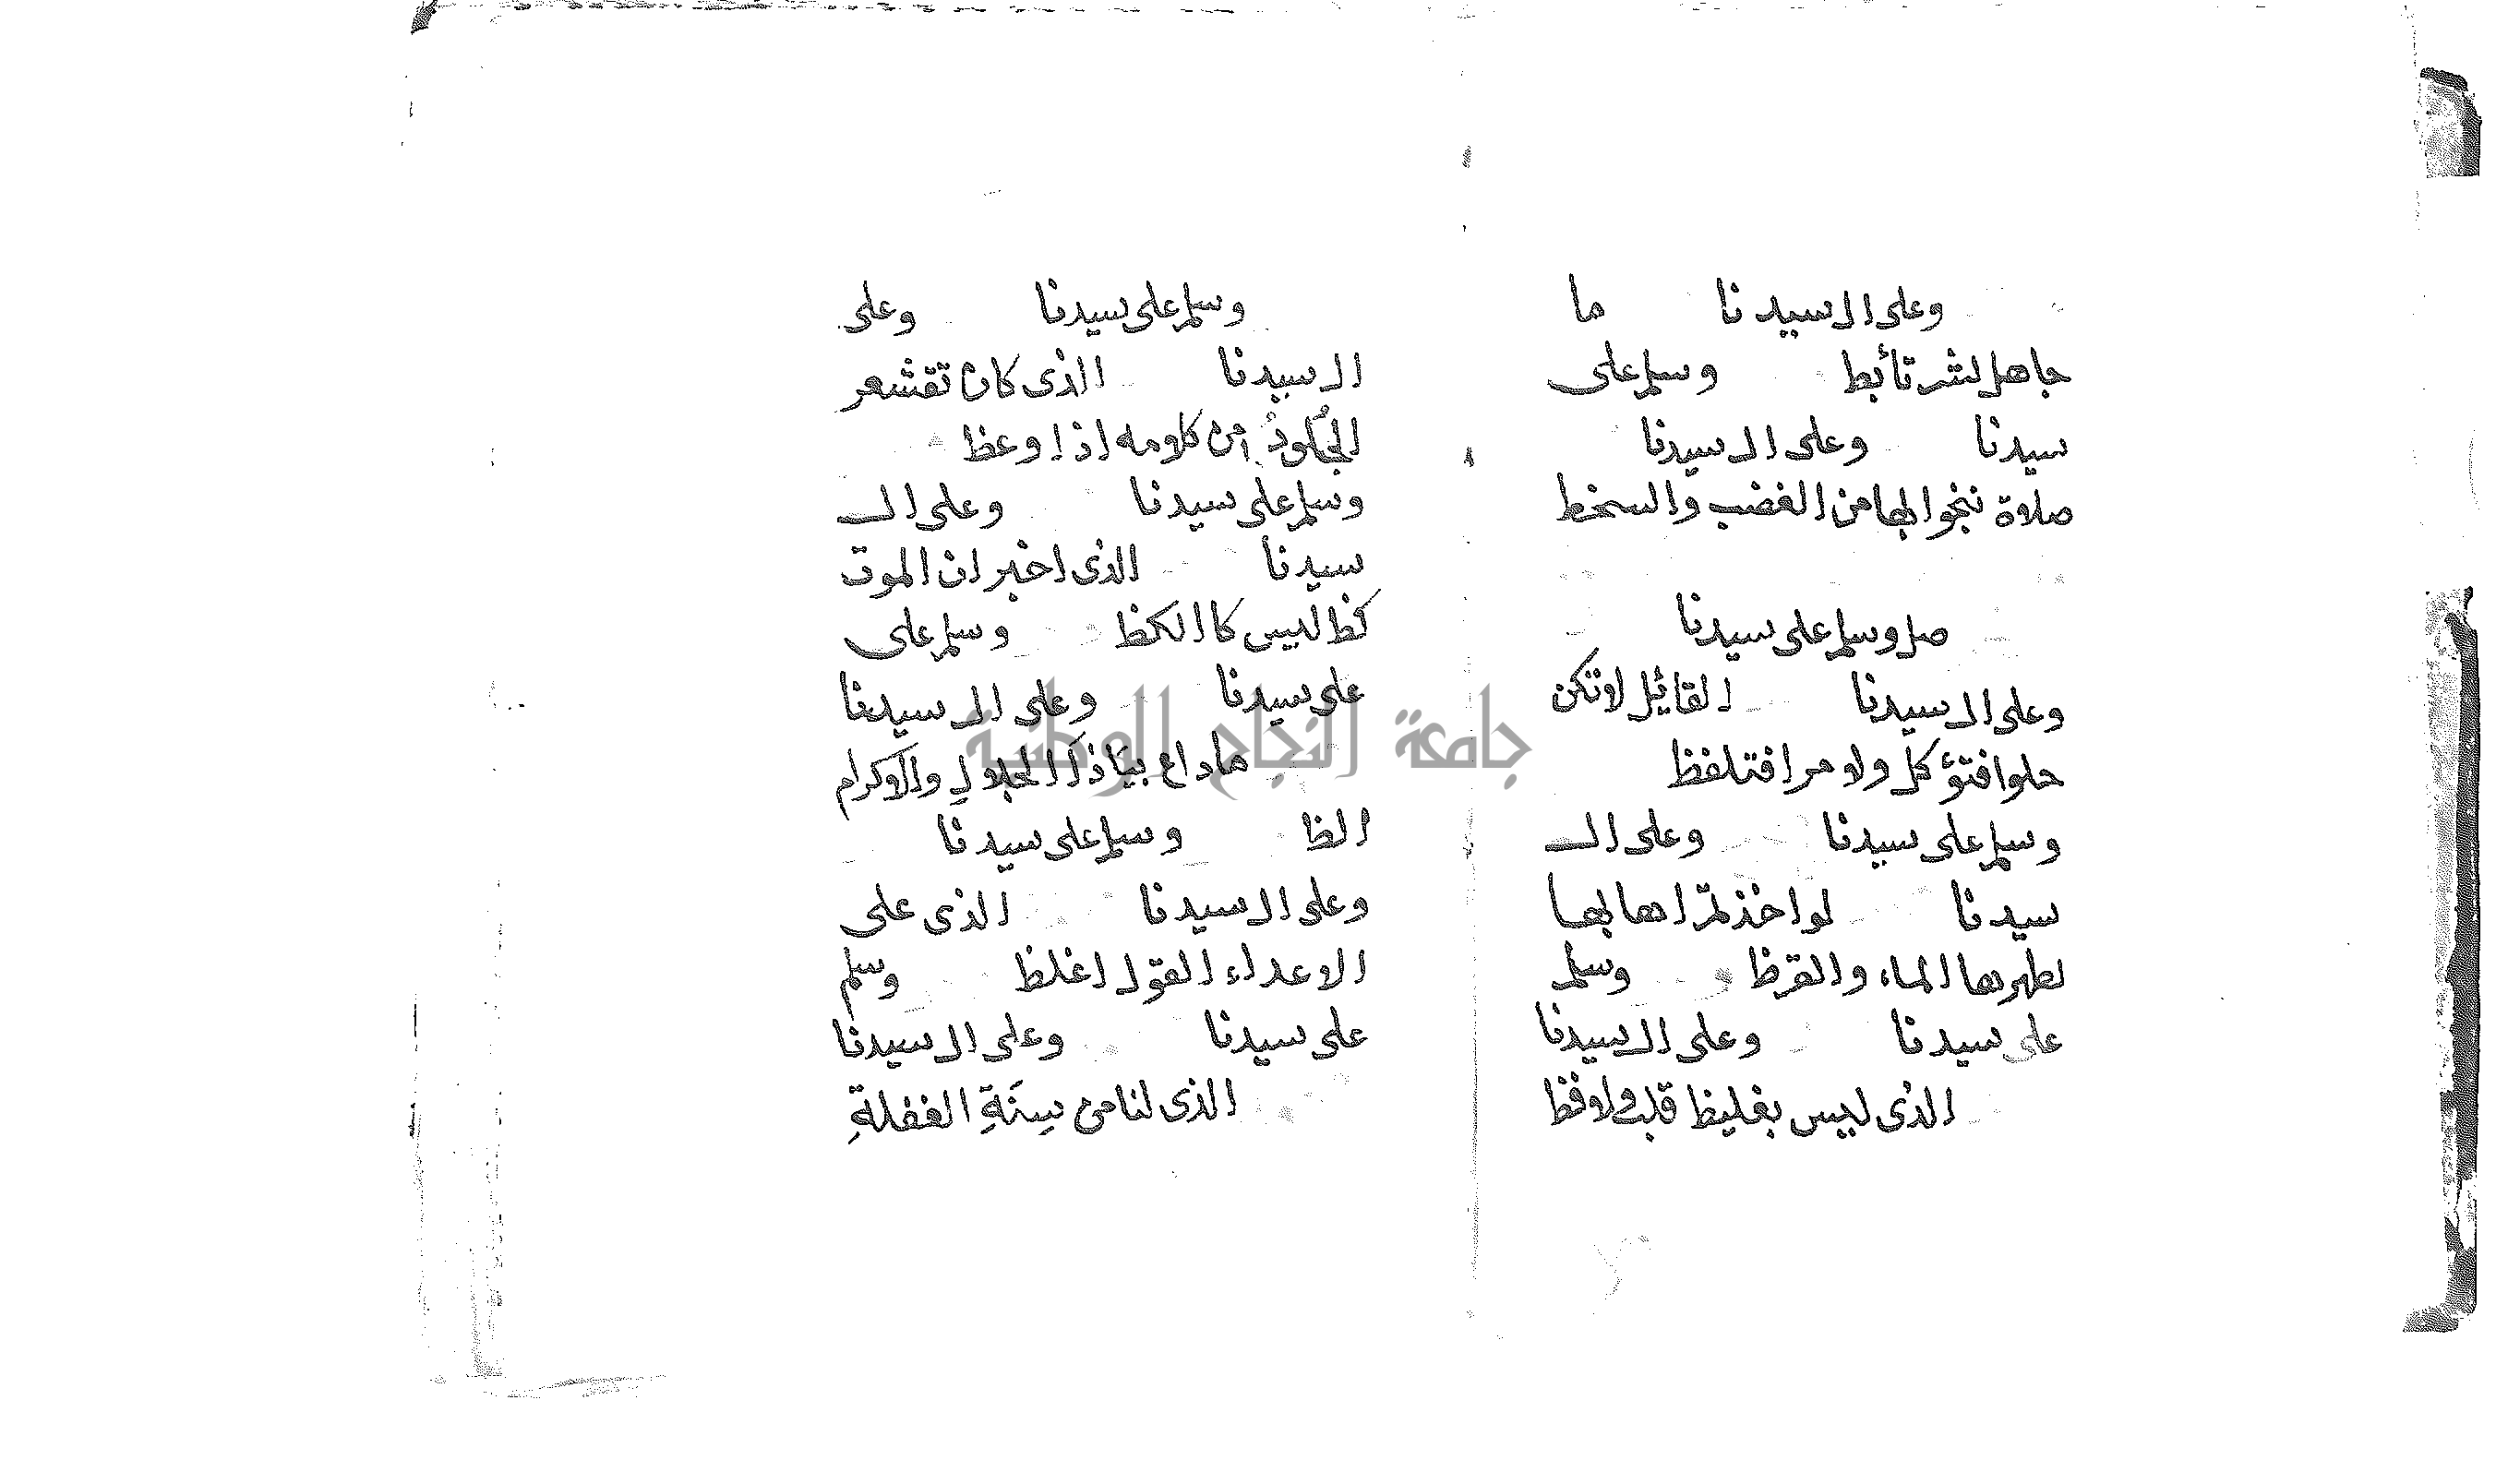 وعلى ال سيدنا ما
جاهل لشر تأبط وسلم على
سيدنا وعلى ال سيدنا
صلاة ننجوا بها من الغضب والسخط
صل وسلم على سيدنا
وعلى ال سيدنا القائيل لا تكن
حلوا فتؤكل ولا مرا فتلفظ
وسلم على سيدنا وعلى ال
سيدنا لو اخذتم اهابها
لطهرها الماء والقرظ وسلم
على سيدنا وعلى ال سيدنا
الذى ليس بغليظ قلب ولا فظ
وسلم على سيدنا وعلى
ال سيدنا الذى كان تقشعر
الجُلُودُ من كلامه اذا وعظ
وسلم على سيدنا وعلى ال
سيدنا الذى اخبر ان الموت
كظ ليس كا الكظ وسلم على
على سيدنا وعلى ال سيدنا
ما داع بيا ذا الجلال والاكرام
الظا وسلم على سيدنا
وعلى ال سيدنا الذى على
الاعداء القول اغلظ وسلم
على سيدنا وعلى ال سيدنا
الذى لنا من سِنَةِ الغفلةِ
جامعة النجاح الوطنية